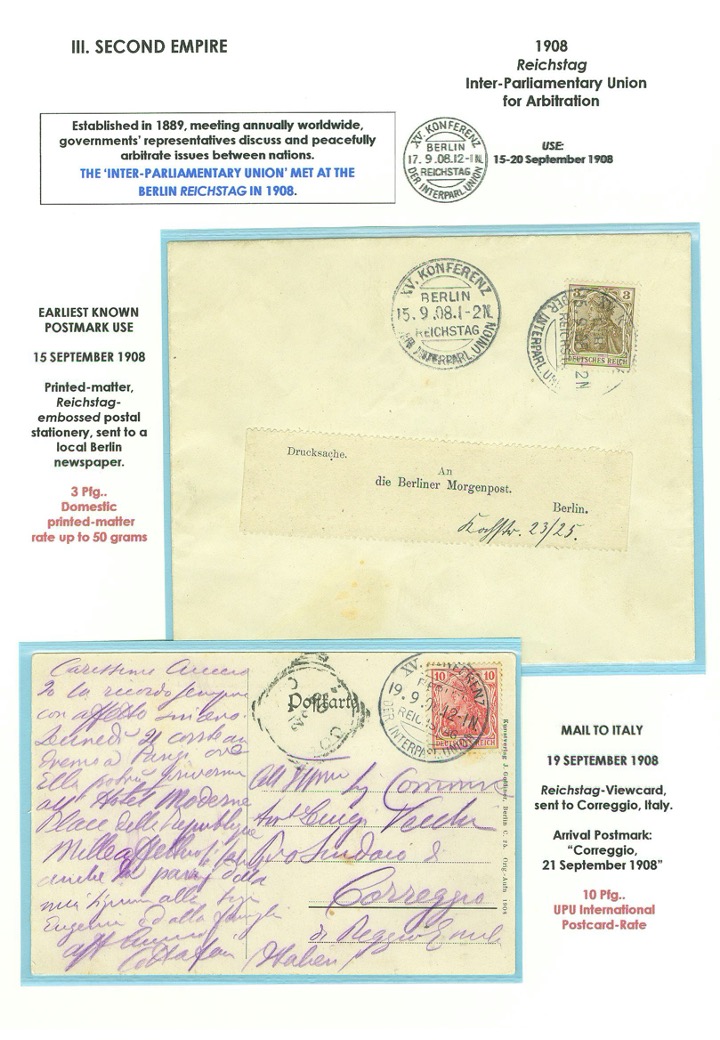 III. SECOND EMPIRE
1908
Reichstag
Inter-Parliamentary Union
for Arbitration
Established in 1889, meeting annually worldwide,
governments' representatives discuss and peacefully
arbitrate issues between nations.
THE 'INTER-PARLIAMENTARY UNION' MET AT THE
BERLIN REICHSTAG IN 1908.
XV. KONFERENZ
BERLIN
17. 9 .08.12-1N.
REICHSTAG
DER INTERPARL. UNION
USE:
15-20 September 1908
EARLIEST KNOWN
POSTMARK USE
15 SEPTEMBER 1908
Printed-matter,
Reichstag-
embossed postal
stationery, sent to a
local Berlin
newspaper.
3 Pfg..
Domestic
printed-matter
rate up to 50 grams
XV. KONFERENZ
BERLIN
15. 9 .08.1-2N.
REICHSTAG
DER INTERPARL. UNION
3 3
DEUTSCHES REICH
2N
DER INTERPARL. UN
Drucksache.
An
die Berliner Morgenpost.
Berlin.
Kochstr. 23/25.
Carissimo
Io la ricordo sempre
con affetto
Ella
all' Hotel Moderne
Place della Republique
anche
alla
Eugenia ed alla famiglia
Postkarte
10 10
DEUTSCHES REICH
XV. KONFERENZ
19. 9 .12-1N
DER INTERPARL. UNION
Luigi
Pro Sindaco di
Correggio
di Reggio Emilia
Italien
Kunstverlag J. Goldiner, Berlin C. 25. Orig.-Aufn. 1908
MAIL TO ITALY
19 SEPTEMBER 1908
Reichstag-Viewcard,
sent to Correggio, Italy.
Arrival Postmark:
"Correggio,
21 September 1908"
10 Pfg..
UPU International
Postcard-Rate